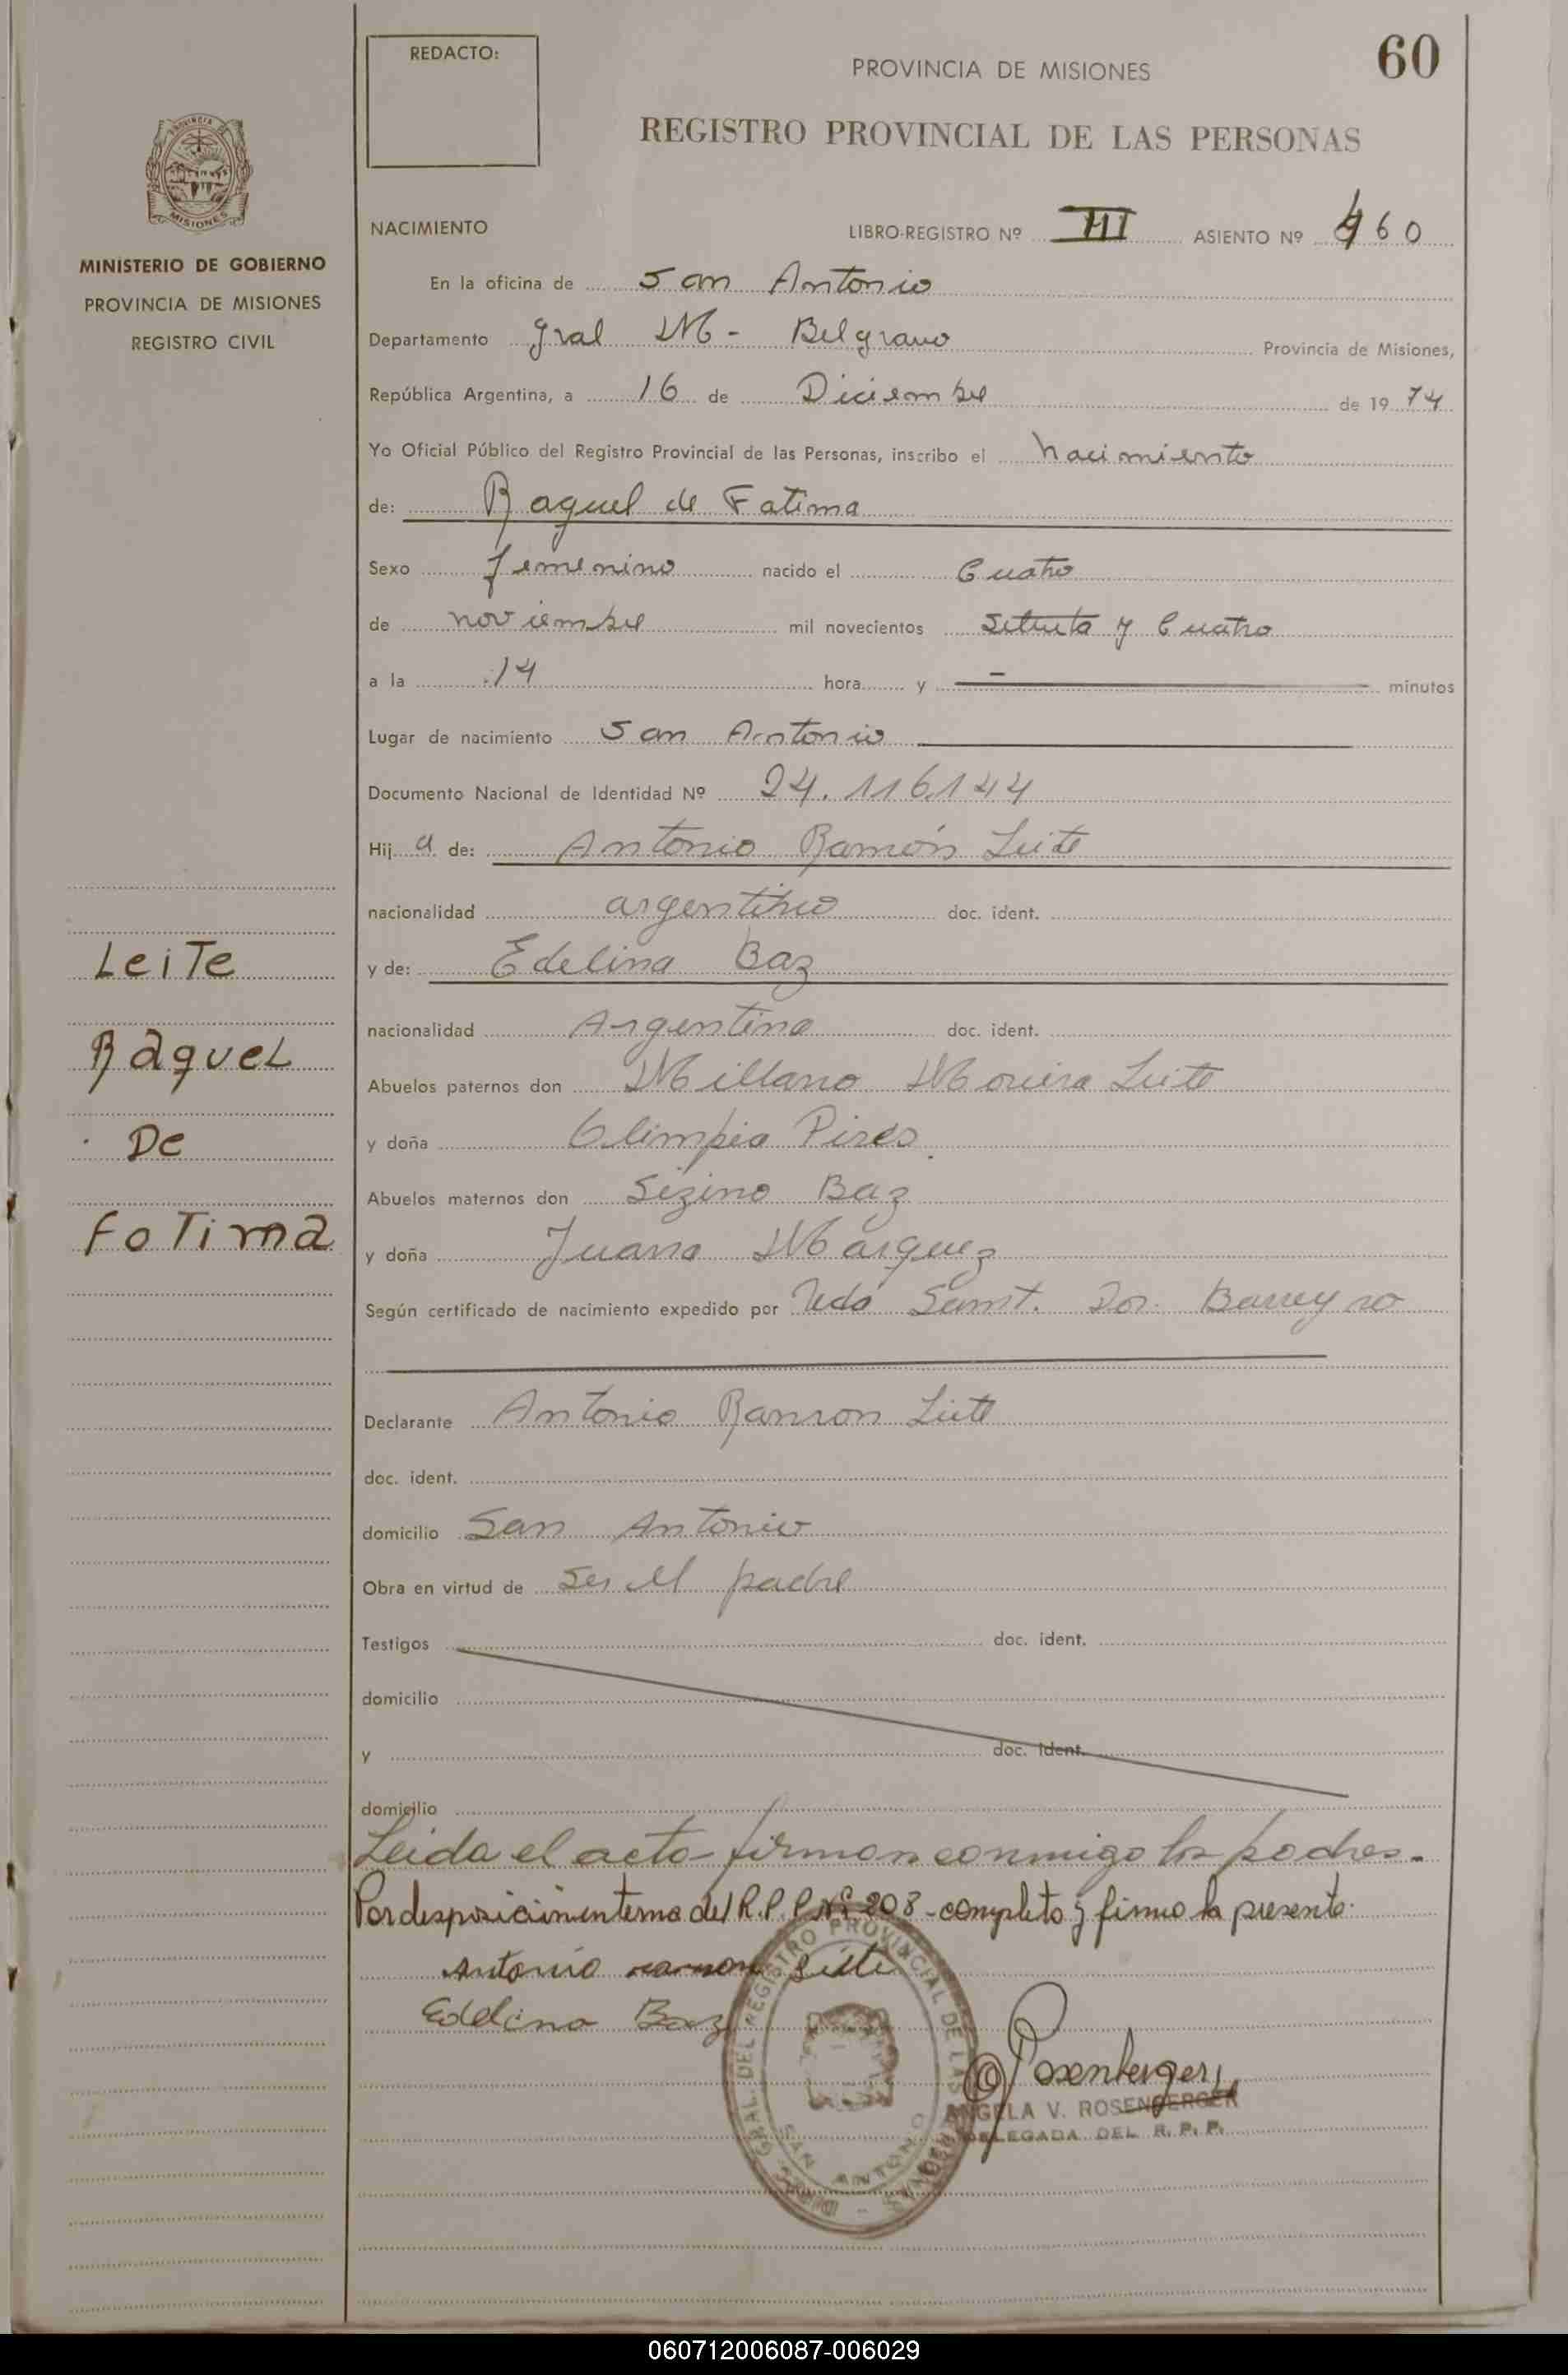 REDACTO:
PROVINCIA DE MISIONES
60
REGISTRO PROVINCIAL DE LAS PERSONAS
PROVINCIA DE
MISIONES
MINISTERIO DE GOBIERNO
PROVINCIA DE MISIONES
REGISTRO CIVIL
NACIMIENTO LIBRO-REGISTRO Nº III ASIENTO Nº 460
En la oficina de San Antonio
Departamento Gral M- Belgrano Provincia de Misiones,
República Argentina, a 16 de Diciembre de 19 74
Yo Oficial Público del Registro Provincial de las Personas, inscribo el nacimiento
de: Raquel de Fatima
Sexo femenino nacido el Cuatro
de noviembre mil novecientos setenta y Cuatro
a la 14 hora y — minutos
Lugar de nacimiento San Antonio
Documento Nacional de Identidad Nº 24.116.144
Hij a de: Antonio Ramón Leite
nacionalidad argentino doc. ident.
y de: Edelina Baz
nacionalidad Argentina doc. ident.
Abuelos paternos don Millano Moreira Leite
y doña Olimpia Pires
Abuelos maternos don Sizino Baz
y doña Juana Márquez
Según certificado de nacimiento expedido por Dor. Barreyro
Declarante Antonio Ramon Leite
doc. ident.
domicilio San Antonio
Obra en virtud de ser el padre
Testigos doc. ident.
domicilio
y doc. ident.
domicilio
Leida el acta firman conmigo los padres.
Por desposicion interna del R.P.P Nº 208 - completo y firmo la presente.
Antonio ramon Leite
Edelina Baz
Rosenberger
ANGELA V. ROSENBERGER
DELEGADA DEL R. P. P.
GRAL. DEL REGISTRO PROVINCIAL DE LAS PERSONAS
SAN ANTONIO
Leite
Raquel
De
Fatima
060712006087-006029